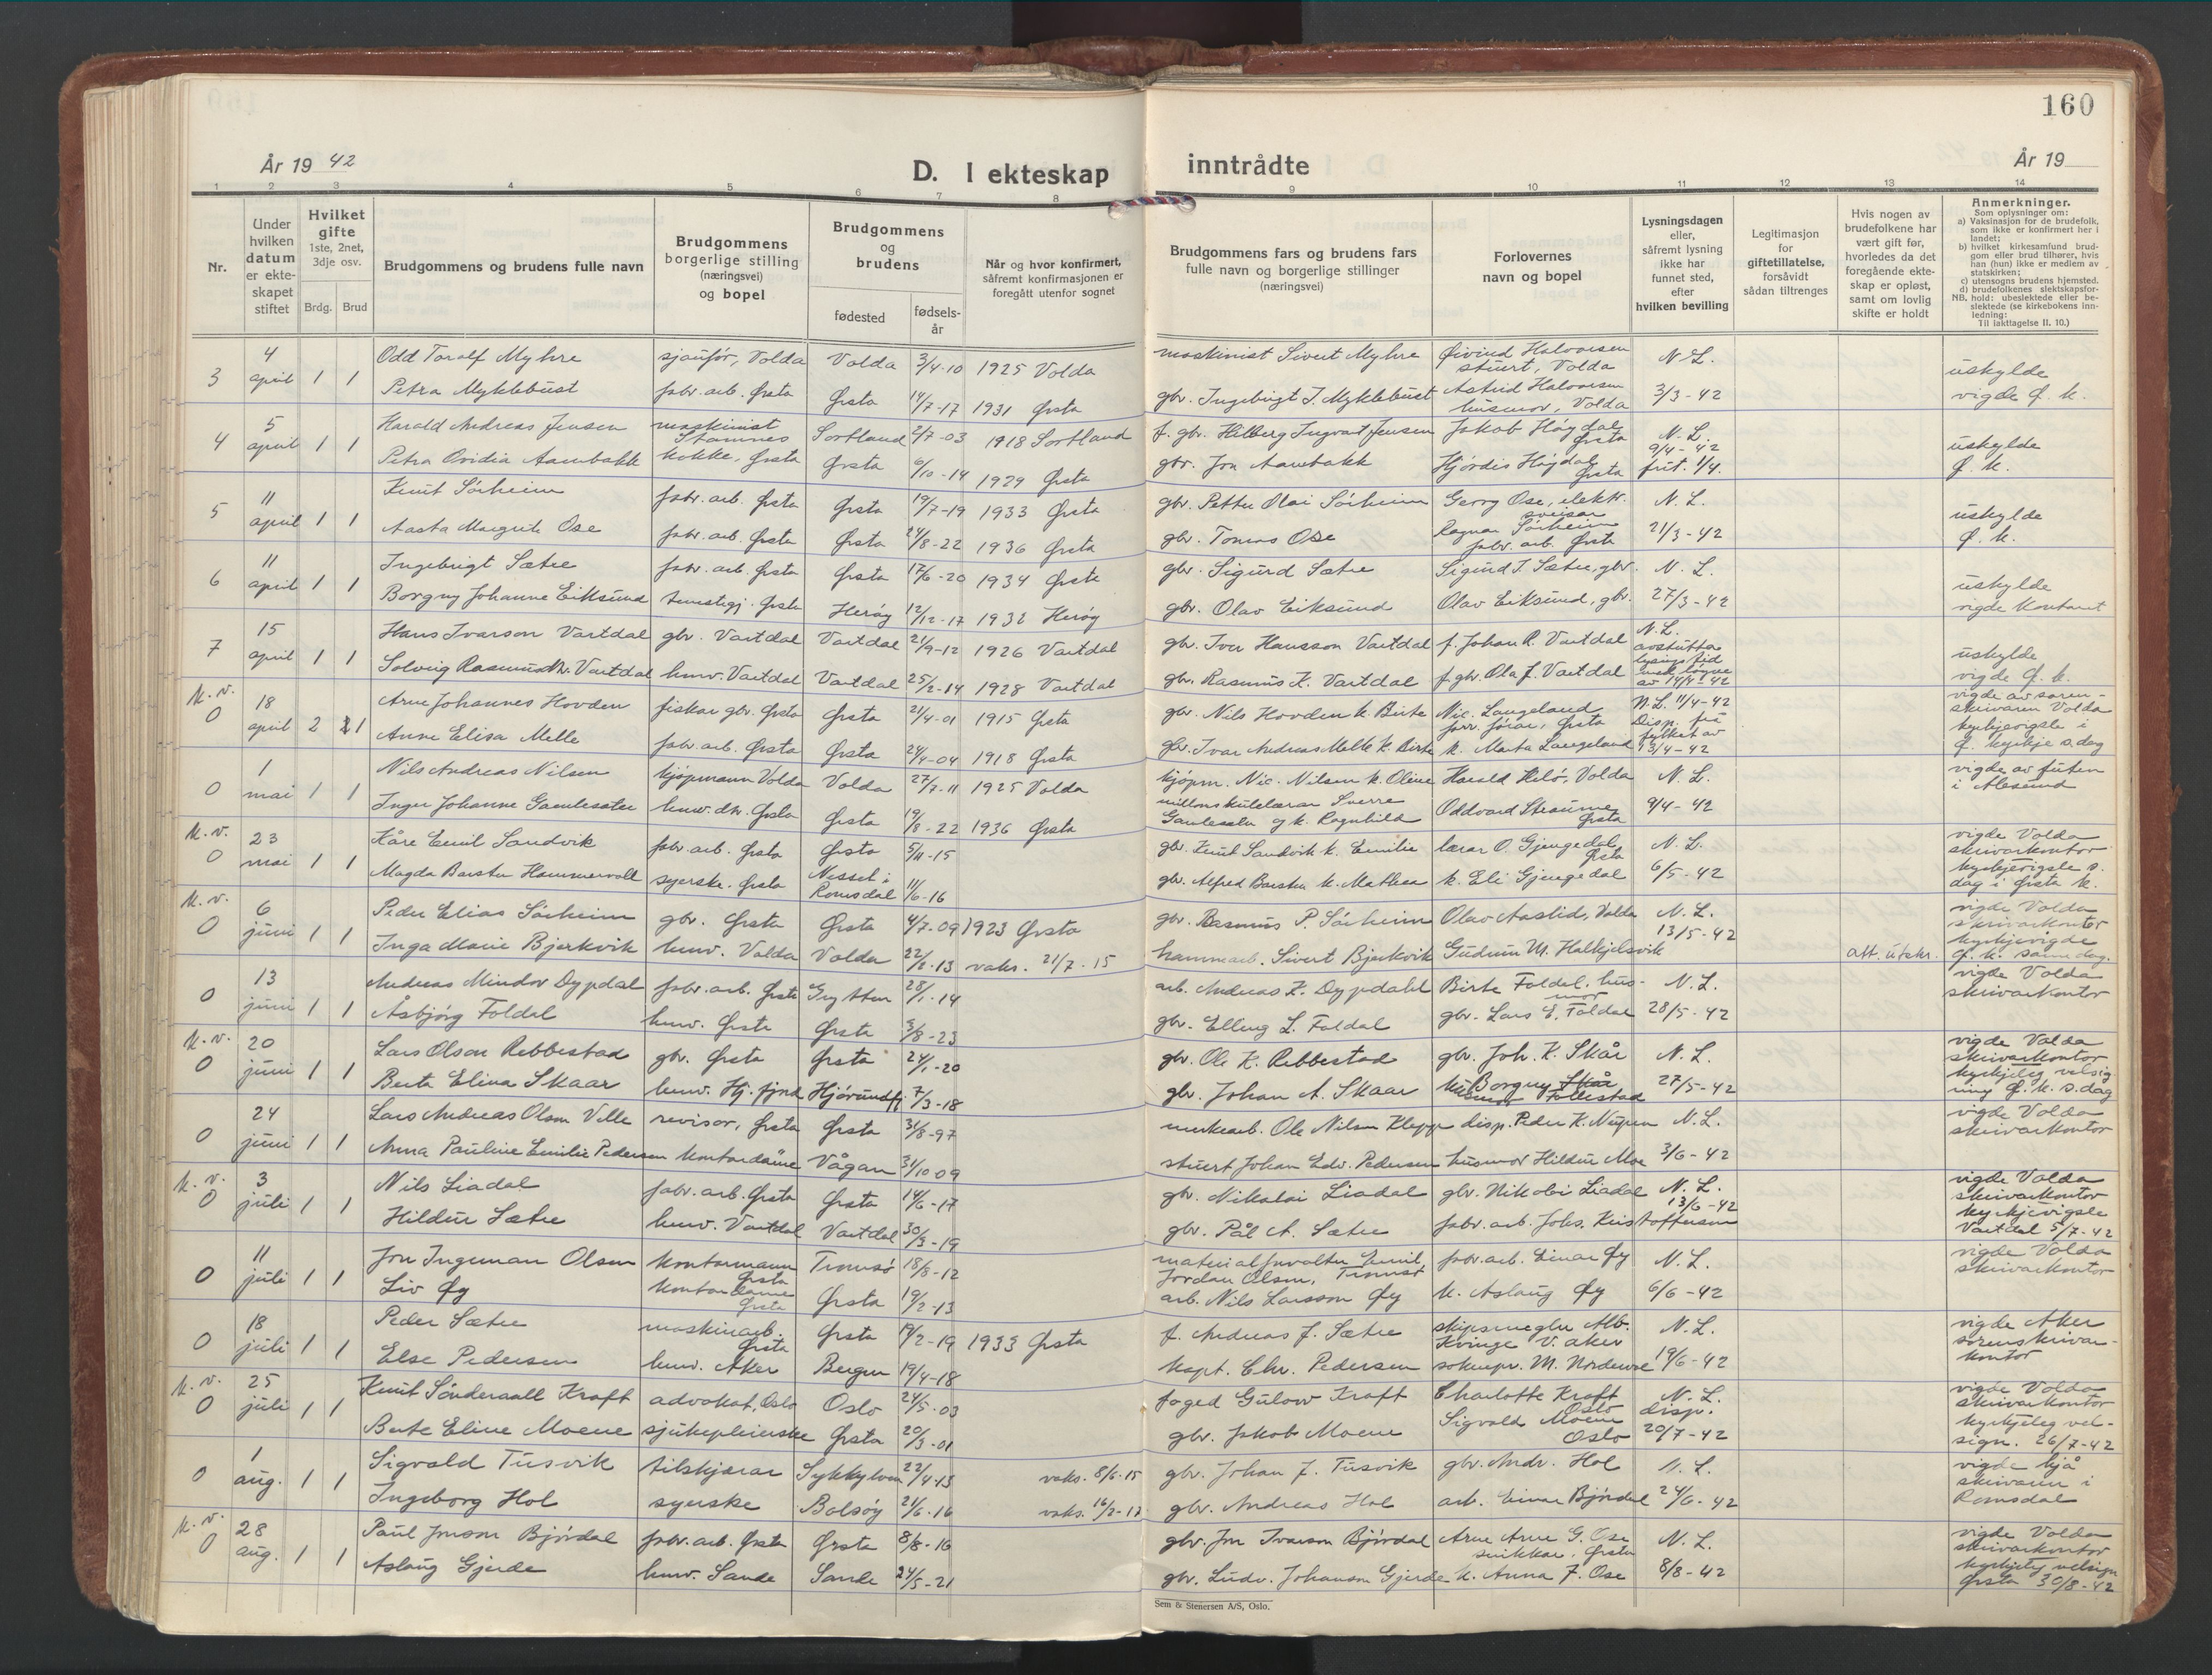 160
År 19 42
D. I ekteskap
inntrådte
År 19
1 2 3 4 5 6 7 8 9 10 11 12 13 14
Nr.
Under hvilken datum er ekteskapet stiftet
Hvilket gifte 1ste, 2net, 3dje osv.
Brdg. Brud
Brudgommens og brudens fulle navn
Brudgommens borgerlige stilling (næringsvei) og bopel
Brudgommens og brudens
fødested
fødsels-år
Når og hvor konfirmert, såfremt konfirmasjonen er foregått utenfor sognet
Brudgommens fars og brudens fars fulle navn og borgerlige stillinger (næringsvei)
Forlovernes navn og bopel
Lysningsdagen eller, såfremt lysning ikke har funnet sted, efter hvilken bevilling
Legitimasjon for giftetillatelse, forsåvidt sådan tiltrenges
Hvis nogen av brudefolkene har vært gift før, hvorledes da det foregående ekteskap er opløst, samt om lovlig skifte er holdt
Anmerkninger.
Som oplysninger om:
a) Vaksinasjon for de brudefolk, som ikke er konfirmert her i landet;
b) hvilket kirkesamfund brudgom eller brud tilhører, hvis han (hun) ikke er medlem av statskirken;
c) utensogns brudens hjemsted.
d) brudefolkenes slektskapsforhold: ubeslektede eller beslektede (se kirkebokens innledning:
NB. Til iakttagelse II. 10.)
3 4 april 1 1 Odd Toralf Myhre sjaufør, Volda Volda 3/4-10 1925 Volda maskinist Sivert Myhre Øivind Halvorsen stuert, Volda N.L.
Petra Myklebust fabr. arb. Ørsta Ørsta 14/7-17 1931 Ørsta gbr. Ingebrigt J. Myklebust Astrid Halvorsen husmor, Volda 3/3-42 uskylde vigde Ø. k.
4 5 april 1 1 Harald Andreas Jensen maskinist Stamnes Sortland 2/7-03 1918 Sortland f. gbr. Hilberg Ingvart Jensen Jakob Høydal Ørsta N.L. 9/4-42
Petra Ovidia Aambakk kokke, Ørsta Ørsta 6/10-14 1929 Ørsta gbr. Jon Aambakk Hjørdis Høydal Ørsta frit. 1/4. uskylde Ø. k.
5 11 april 1 1 Knut Sørheim fabr. arb. Ørsta Ørsta 19/7-19 1933 Ørsta gbr. Petter Olai Sørheim Georg Ose, elektr. sveisar N.L.
Aasta Margrete Ose fabr. arb. Ørsta Ørsta 24/8-22 1936 Ørsta gbr. Tomas Ose Ragnar Sørheim fabr. arb. Ørsta 21/3-42 uskylde Ø. k.
6 11 april 1 1 Ingebrigt Sætre fabr. arb. Ørsta Ørsta 17/6-20 1934 Ørsta gbr. Sigurd Sætre Sigurd T. Sætre, gbr. N.L.
Borgny Johanne Eiksund tenestegj. Ørsta Herøy 12/12-17 1932 Herøy gbr. Olav Eiksund Olav Eiksund, gbr. 27/3-42 uskylde vigde kontoret
7 15 april 1 1 Hans Ivarson Vartdal gbr. Vartdal Vartdal 21/9-12 1926 Vartdal gbr. Iver Hansson Vartdal f. Johan R. Vartdal N.L. avstutta lysingstid
Solveig Rasmusdtr. Vartdal husv. Vartdal Vartdal 25/2-14 1928 Vartdal gbr. Rasmus K. Vartdal f. gbr. Ola J. Vartdal av 14/4-42 uskylde vigde Ø. k.
k. v. 0 18 april 2 1 Arne Johannes Hovden fiskar gbr. Ørsta Ørsta 2/4-01 1915 Ørsta gbr. Nils Hovden k. Birte Nic. Langeland forr.førar, Ørsta N.L. 11/4-42 Disp. frå fylket av 13/4-42
Anne Elisa Melle fabr. arb. Ørsta Ørsta 24/4-04 1918 Ørsta gbr. Ivar Andreas Melle k. Birte k. Marta Langeland vigde av sorenskrivaren Volda kyrkjevigsle i Ø. kyrkje s.dag
0 1 mai 1 1 Nils Andreas Nilsen kjøpmann Volda Volda 27/7-11 1925 Volda kjøpm. Nic. Nilsen k. Oline Harald Helø, Volda N.L.
Inger Johanne Gamlesæter husv. dtr. Ørsta Ørsta 19/8-22 1936 Ørsta millomskulelærar Sverre Gamlesæter og k. Ragnhild Oddvard Straume Ørsta 9/4-42 vigde av futen i Ålesund
k. v. 0 23 mai 1 1 Kåre Emil Sandvik fabr. arb. Ørsta Ørsta 5/11-15 gbr. Knut Sandvik k. Emilie lærar O. Gjengedal, Ørsta N.L.
Magda Barsten Hammervoll syerske. Ørsta Nesset i Romsdal 11/6-16 gbr. Alfred Barsten k. Mathea k. Eli Gjengedal 6/5-42 vigde Volda skrivarkontor kyrkjevigsle s. dag i Ørsta k.
k. v. 0 6 juni 1 1 Peder Elias Sørheim gbr. Ørsta Ørsta 4/7-09 1923 Ørsta gbr. Rasmus P. Sørheim Olav Aastid, Volda N.L. 13/5-42
Inga Marie Bjerkvik husv. Volda Volda 22/2-13 vaks. 21/7-15 hammarb. Sivert Bjerkvik Gudrun M. Halkjelsvik att. utskr. vigde Volda skrivarkontor kyrkjevigde Ø. k. samedag.
0 13 juni 1 1 Andreas Mindor Dypdal fabr. arb. Ørsta Grytten 28/1-14 arb. Andreas K. Dypdahl Birte Foldal, husmor N.L.
Åsbjørg Foldal husv. Ørsta Ørsta 3/8-23 gbr. Elling L. Foldal gbr. Lars E. Foldal 28/5-42 vigde Volda skrivarkontor
k. v. 0 20 juni 1 1 Lars Olson Rebbestad gbr. Ørsta Ørsta 24/1-20 gbr. Ole K. Rebbestad gbr. Joh. K. Skår N.L.
Berta Elina Skaar husv. Hj.fjord Hjørundfj. 7/3-18 gbr. Johan A. Skaar Borgny Follestad 27/5-42 vigde Volda skrivarkontor kyrkjeleg velsigning Ø. k. s.dag
0 24 juni 1 1 Lars Andreas Olson Velle revisor, Ørsta Ørsta 31/8-97 murkearb. Ole Nilsen Klepp disp. Peder K. Nupen N.L.
Anna Pauline Emilie Pedersen kontordame Vågan 31/10 09 stuert Johan Edv. Pedersen husmor Hildur Moe 3/6-42 vigde Volda skrivarkontor
k. v. 0 3 juli 1 1 Nils Liadal fabr. arb. Ørsta Ørsta 14/6-17 gbr. Nikolai Liadal gbr. Nikolai Liadal N.L. 13/6-42
Hildur Sætre husv. Vartdal Vartdal 30/3-19 gbr. Pål A. Sætre fabr. arb. Johs. Kristoffersen vigde Volda skrivarkontor kyrkjevigsle Vartdal 5/7-42
0 11 juli 1 1 Jon Ingeman Olsen kontormann Ørsta Tromsø 18/8-12 materialforvalter Emil Jordan Olsen, Tromsø fabr. arb. Einar Øy N.L.
Liv Øy kontordame Ørsta Ørsta 19/2-13 arb. Nils Larsson Øy k. Aslaug Øy 6/6-42 vigde Volda skrivarkontor
0 18 juli 1 1 Peder Sætre maskinarb. Ørsta Ørsta 19/2-19 1933 Ørsta f. Andreas J. Sætre skipsmegler Alb. Kvinge V. Aker N.L.
Else Pedersen husv. Aker Bergen 19/4-18 kapt. Chr. Pedersen soknepr. M. Norderve 19/6-42 vigde Aker sorenskrivarkontor
k. v. 0 25 juli 1 1 Knut Sønderaall Kraft advokat, Oslo Oslo 24/5-03 foged Gulow Kraft Charlotte Kraft Oslo N.L. disp.
Berte Eline Moene sjukepleierske Ørsta 20/3-01 gbr. Jakob Moene Sigvald Moene Oslo 20/7-42 vigde Volda skrivarkontor kyrkjeleg velsign. 26/7-42
0 1 aug. 1 1 Sigvald Tusvik tilskjærar Sykkylven 22/4-13 vaks. 8/6-15 gbr. Johan J. Tusvik gbr. Andr. Hol N.L.
Ingeborg Hol syerske Bolsøy 24/6-16 vaks. 16/2-17 gbr. Andreas Hol arb. Einar Bjørdal 24/6-42 vigde hjå skrivaren i Romsdal
k. v. 0 28 aug. 1 1 Paul Jonson Bjørdal fabr. arb. Ørsta Ørsta 8/8-16 gbr. Jon Ivarson Bjørdal Arne Arne G. Ose snikkar, Ørsta N.L.
Aslaug Gjerde husv. Sande Sande 24/5-21 gbr. Ludv. Johanson Gjerde k. Anna J. Ose 8/8-42 vigde Volda skrivarkontor kyrkjeleg velsign Ørsta 30/8-42
Sem & Stenersen A/S, Oslo.